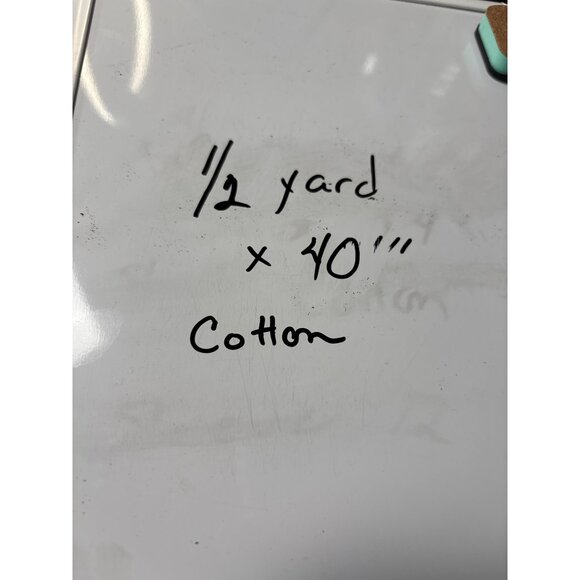 1/2 yard
x 40'''
Cotton